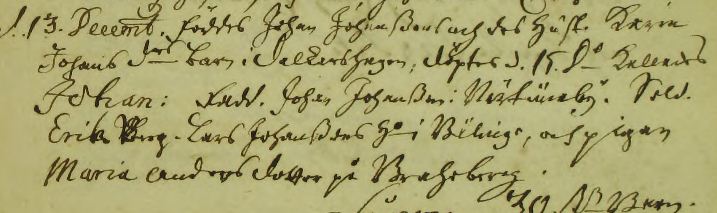 d. 13. Decemb. föddes Johan Johanßons och des Hust. Kerin
Johans dotrs barn i Salkarshagen, döptes d. 15. Do kallades
Johan: Fadd. Johan Johanßon i Nörtuneby. Sold.
Erik Berg. Lars Johanßons Ho i Bölinge, och pigan
Maria Anders dotter på Braheberg.